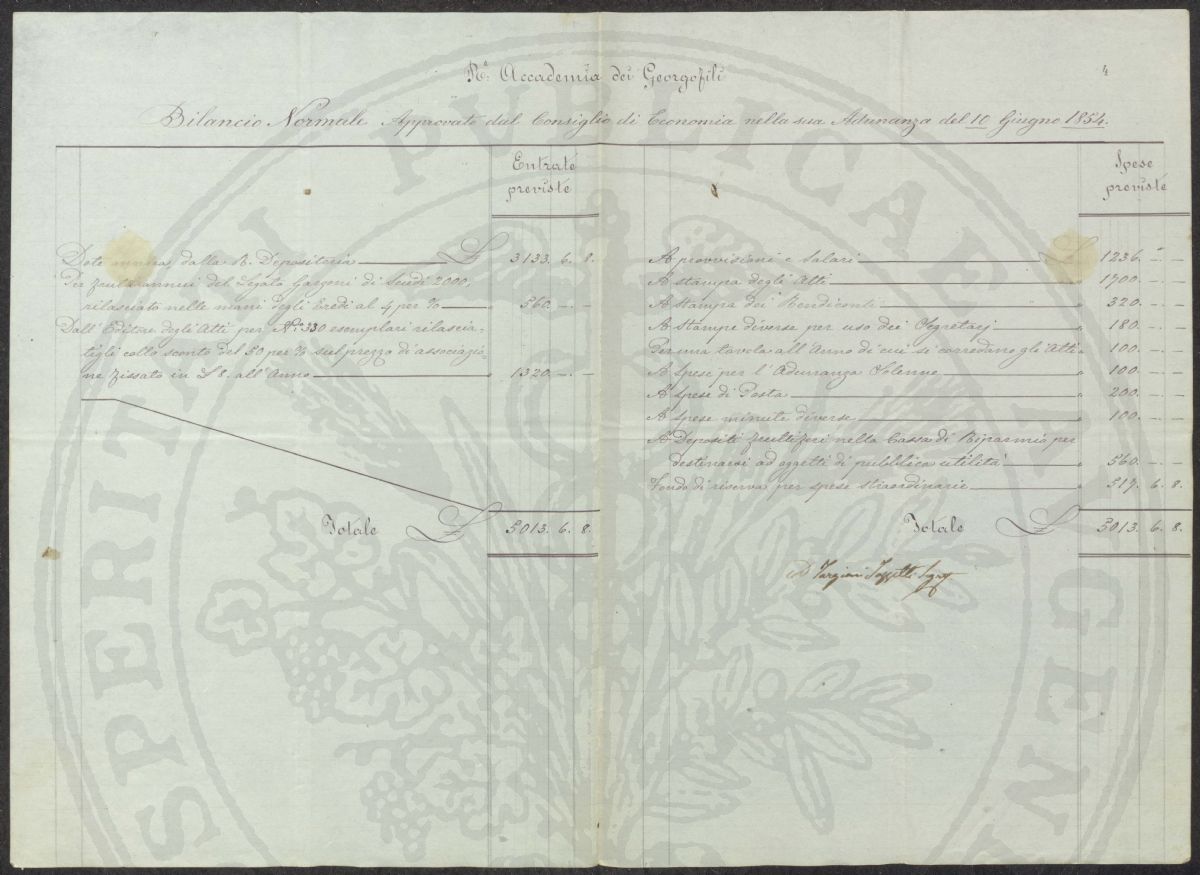 4
R.ª Accademia dei Georgofili
Bilancio Normale Approvato dal Consiglio di Economia nella sua Adunanza del 10 Giugno 1854.
Entrate
previste
Dote annua dalla R. Depositeria £ 3133. 6. 8.
Per frutti annui del Legato Garzoni di Scudi 2000,
rilasciato nelle mani degli Eredi al 4 per % 560. - -
Dall'Editore degli Atti per N.º 330 esemplari rilascia-
tigli collo sconto del 50 per % sul prezzo di associazio
ne fissato in £ 8. all'Anno " 1320. - -
Totale £ 5013. 6. 8.
Spese
previste
A provvisioni e Salari £ 1236. " -
A stampa degli Atti " 1700. - -
A stampa dei Rendiconti " 320. - -
A Stampe diverse per uso dei Segretarj " 180. - -
Per una tavola all'Anno di cui si corredano gli Atti " 100. - -
A Spese per l'Adunanza Solenne " 100. - -
A spese di Posta " 200. - -
A spese minute diverse " 100. - -
A Depositi fruttiferi nella Cassa di Risparmio per
destinarsi ad oggetti di pubblica utilità " 560. - -
Fondo di riserva per spese straordinarie " 517. 6. 8.
Totale £ 5013. 6. 8.
Targioni Tozzetti
PROSPERITATI PUBLICAE AUGENDAE